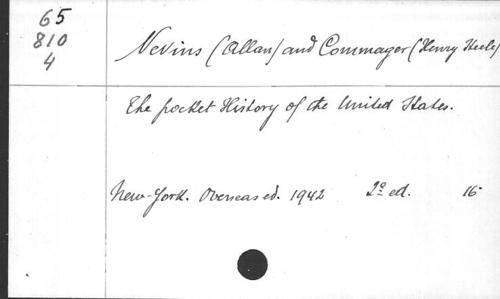 65
810
4
Nevins (Allan) and Commager (Henry Steele)
The pocket History of the United States.
New-York. Overseas ed. 1942 2º ed. 16º